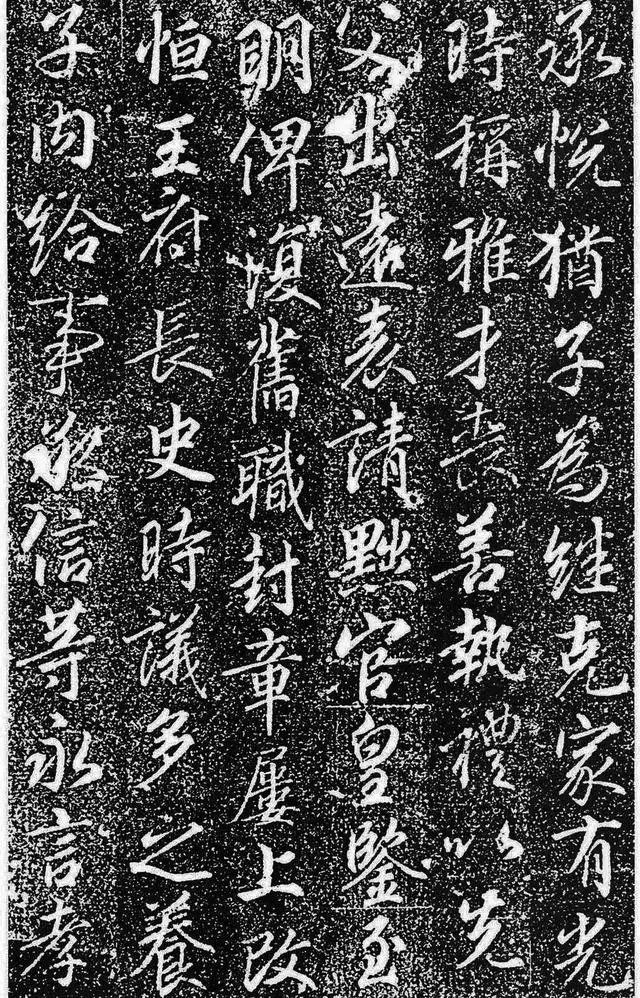 承悦猶子為継克家有光
時稱雅才喪善執禮以先
父出遠表請黜官皇鑒至
明俾復舊職封章屢上改
恒王府長史時議多之養
子內給事承信等永言孝